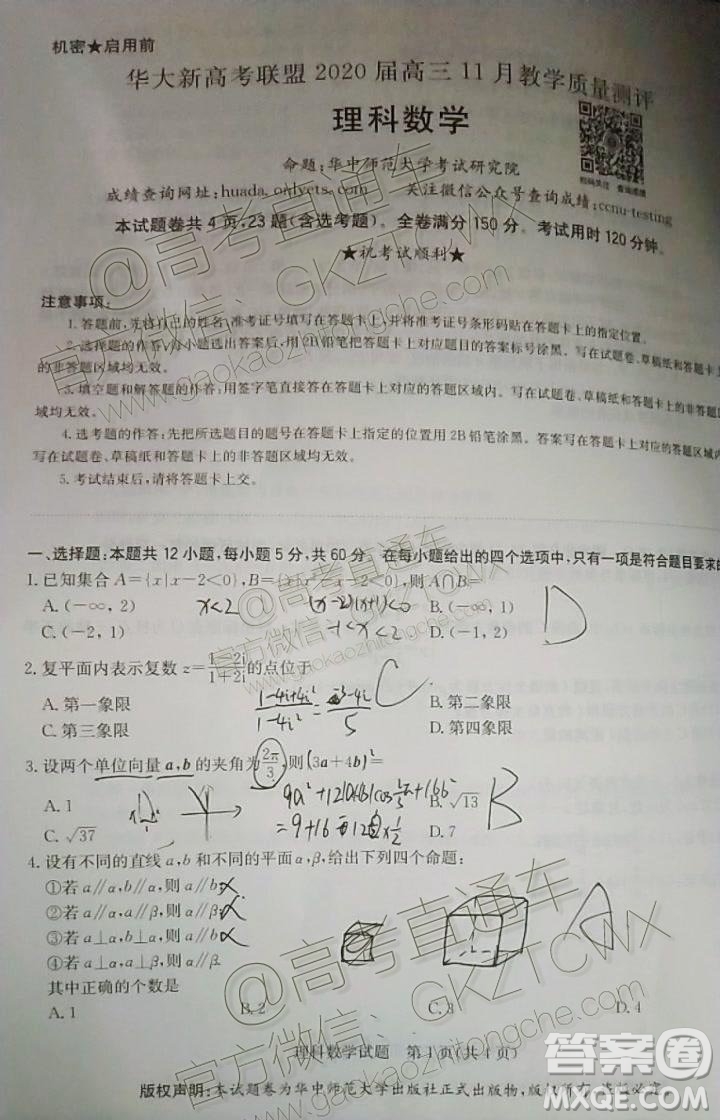 机密★启用前
华大新高考联盟 2020 届高三 11 月教学质量测评
理科数学
命题:华中师范大学考试研究院
扫码关注 查询成绩
成绩查询网址:huada.onlyets.com 关注微信公众号查询成绩:ccnu-testing
本试题卷共 4 页,23 题(含选考题)。全卷满分 150 分。考试用时 120 分钟。
★祝考试顺利★
注意事项:
1.答题前,先将自己的姓名、准考证号填写在答题卡上,并将准考证号条形码贴在答题卡上的指定位置。
2.选择题的作答:每小题选出答案后,用 2B 铅笔把答题卡上对应题目的答案标号涂黑。写在试题卷、草稿纸和答题卡上
的非答题区域均无效。
3.填空题和解答题的作答:用签字笔直接答在答题卡上对应的答题区域内。写在试题卷、草稿纸和答题卡上的非答题区
域均无效。
4.选考题的作答:先把所选题目的题号在答题卡上指定的位置用2B 铅笔涂黑。答案写在答题卡上对应的答题区域内,
写在试题卷、草稿纸和答题卡上的非答题区域均无效。
5.考试结束后,请将答题卡上交。
一、选择题:本题共 12 小题,每小题 5 分,共 60 分。在每小题给出的四个选项中,只有一项是符合题目要求的
1.已知集合 A={x|x-2<0},B={x|x²-x-2<0},则 A∩B=
A.(-∞,2) x<2 (x-2)(x+1)<0 B.(-∞,1) D
C.(-2,1) -1<x<2 D.(-1,2)
2.复平面内表示复数 z=(1-2i)/(1+2i)的点位于 C
A.第一象限 (1-4i+4i²)/(1-4i²)=(-3-4i)/5 B.第二象限
C.第三象限 D.第四象限
3.设两个单位向量 a,b 的夹角为2π/3,则(3a+4b)²=
A.1 B.√13 B
C.√37 =9+16 D.7
4.设有不同的直线 a,b 和不同的平面 α,β,给出下列四个命题:
①若 a∥α,b∥α,则 a∥b
②若 a∥α,a∥β,则 α∥β
③若 a⊥α,b⊥α,则 a∥b
④若 a⊥α,a⊥β,则 α∥β.
其中正确的个数是
A.1 B.2 C.3 D.4
理科数学试题 第 1 页(共 4 页)
版权声明:本试题卷为华中师范大学出版社正式出版物,版权所有,盗版必究。
@高考直通车
官方微信:GKZTCWX
www.gaokaozhitongche.com
@高考直通车
官方微信:GKZTCWX
www.gaokaozhitongche.com
@高考直通车
官方微信:GKZTCWX
www.gaokaozhitongche.com
答案圈
MXQE.COM